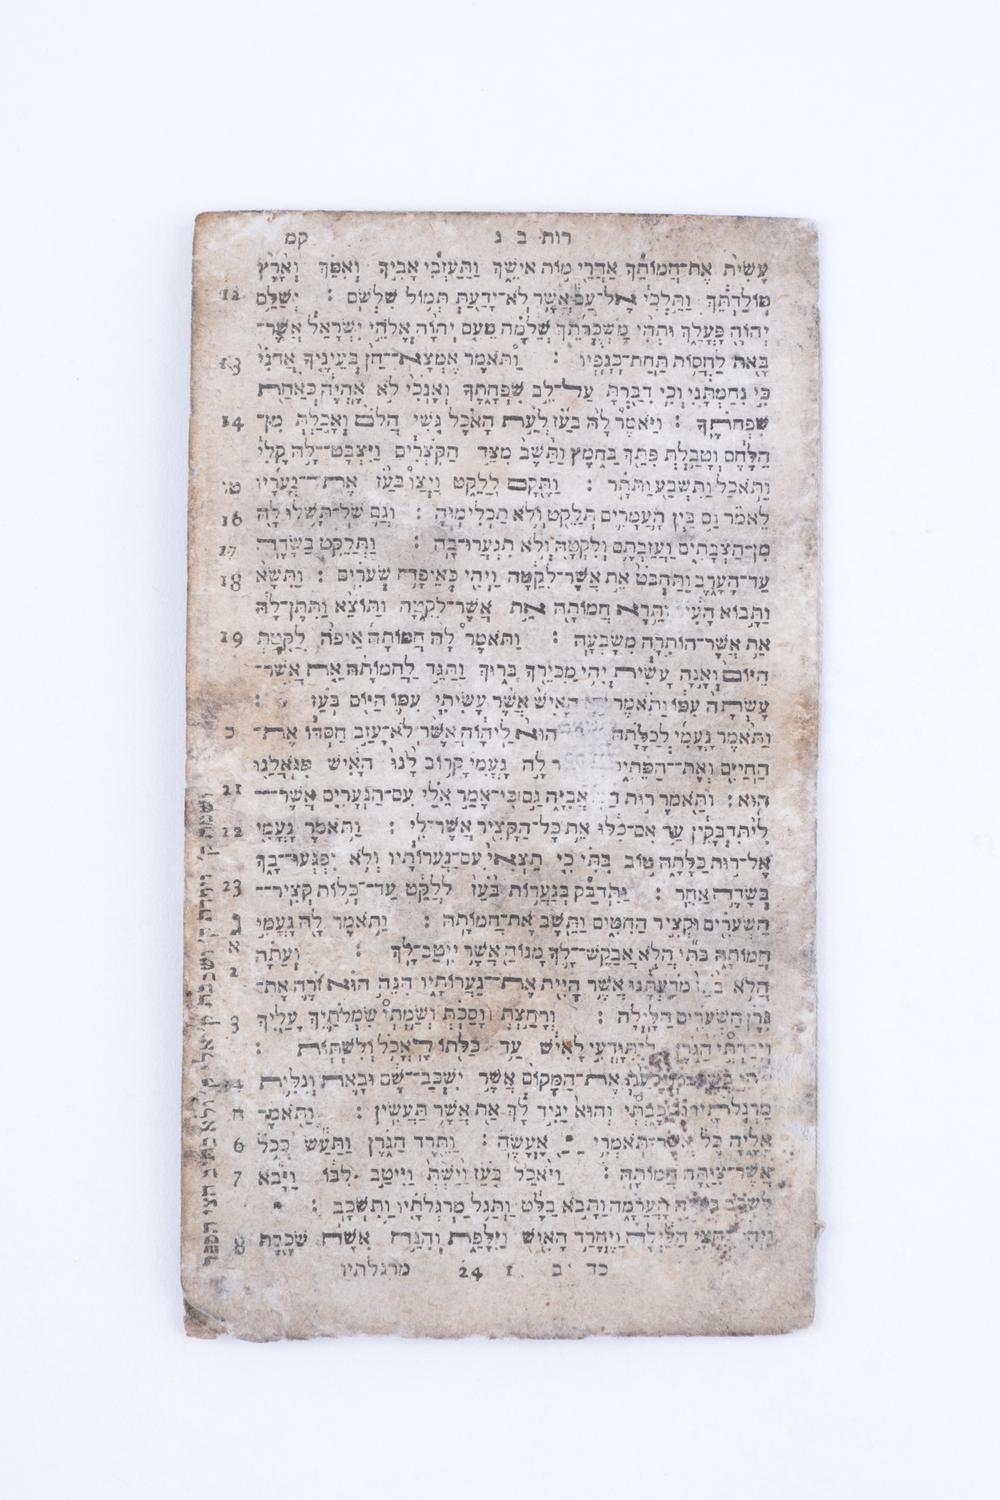 רות ב ג קמ
עָשִׂית אֶת־חֲמוֹתֵךְ אַחֲרֵי מוֹת אִישֵׁךְ וַתַּעַזְבִי אָבִיךְ וְאִמֵּךְ וְאֶרֶץ
12 מוֹלַדְתֵּךְ וַתֵּלְכִי אֶל־עַם אֲשֶׁר לֹא־יָדַעַתְּ תְּמוֹל שִׁלְשׁוֹם : יְשַׁלֵּם
יְהוָֹה פָּעֳלֵךְ וּתְהִי מַשְׂכֻּרְתֵּךְ שְׁלֵמָה מֵעִם יְהוָֹה אֱלֹהֵי יִשְׂרָאֵל אֲשֶׁר־
13 בָּאת לַחֲסוֹת תַּחַת־כְּנָפָיו : וַתֹּאמֶר אֶמְצָא־חֵן בְּעֵינֶיךָ אֲדֹנִי
כִּי נִחַמְתָּנִי וְכִי דִבַּרְתָּ עַל־לֵב שִׁפְחָתֶךָ וְאָנֹכִי לֹא אֶהְיֶה כְּאַחַת
14 שִׁפְחֹתֶיךָ : וַיֹּאמֶר לָה בֹעַז לְעֵת הָאֹכֶל גֹּשִׁי הֲלֹם וְאָכַלְתְּ מִן־
הַלֶּחֶם וְטָבַלְתְּ פִּתֵּךְ בַּחֹמֶץ וַתֵּשֶׁב מִצַּד הַקֹּצְרִים וַיִּצְבָּט־לָהּ קָלִי
טו וַתֹּאכַל וַתִּשְׂבַּע וַתֹּתַר : וַתָּקָם לְלַקֵּט וַיְצַו בֹּעַז אֶת־נְעָרָיו
16 לֵאמֹר גַּם בֵּין הָעֳמָרִים תְּלַקֵּט וְלֹא תַכְלִימוּהָ : וְגַם שֹׁל־תָּשֹׁלּוּ לָהּ
17 מִן־הַצְּבָתִים וַעֲזַבְתֶּם וְלִקְּטָה וְלֹא תִגְעֲרוּ־בָהּ : וַתְּלַקֵּט בַּשָּׂדֶה
18 עַד־הָעָרֶב וַתַּחְבֹּט אֵת אֲשֶׁר־לִקֵּטָה וַיְהִי כְּאֵיפָה שְׂעֹרִים : וַתִּשָּׂא
וַתָּבוֹא הָעִי תֵּרֶא חֲמוֹתָהּ אֵת אֲשֶׁר־לִקֵּטָה וַתּוֹצֵא וַתִּתֶּן־לָהּ
19 אֵת אֲשֶׁר־הוֹתִרָה מִשָּׂבְעָהּ : וַתֹּאמֶר לָהּ חֲמוֹתָהּ אֵיפֹה לִקַּטְתְּ
הַיּוֹם וְאָנָה עָשִׂית יְהִי מַכִּירֵךְ בָּרוּךְ וַתַּגֵּד לַחֲמוֹתָהּ אֵת אֲשֶׁר־
עָשְׂתָה עִמּוֹ וַתֹּאמֶר הָאִישׁ אֲשֶׁר עָשִׂיתִי עִמּוֹ הַיּוֹם בֹּעַז :
כ וַתֹּאמֶר נָעֳמִי לְכַלָּתָהּ הוּא לַיהוָֹה אֲשֶׁר לֹא־עָזַב חַסְדּוֹ אֶת־
הַחַיִּים וְאֶת־הַמֵּתִי ר לָהּ נָעֳמִי קָרוֹב לָנוּ הָאִישׁ מִגֹּאֲלֵנוּ
21 הוּא : וַתֹּאמֶר רוּת הַ אֲבִיָּה גַּם כִּי־אָמַר אֵלַי עִם־הַנְּעָרִים אֲשֶׁר־
22 לִי תִּדְבָּקִין עַד אִם־כִּלּוּ אֵת כָּל־הַקָּצִיר אֲשֶׁר־לִי : וַתֹּאמֶר נָעֳמִי
אֶל־רוּת כַּלָּתָהּ טוֹב בִּתִּי כִּי תֵצְאִי עִם־נַעֲרוֹתָיו וְלֹא יִפְגְּעוּ־בָךְ
23 בְּשָׂדֶה אַחֵר : וַתִּדְבַּק בְּנַעֲרוֹת בֹּעַז לְלַקֵּט עַד־כְּלוֹת קְצִיר־
ג א הַשְּׂעֹרִים וּקְצִיר הַחִטִּים וַתֵּשֶׁב אֶת־חֲמוֹתָהּ : וַתֹּאמֶר לָהּ נָעֳמִי
2 חֲמוֹתָהּ בִּתִּי הֲלֹא אֲבַקֶּשׁ־לָךְ מָנוֹחַ אֲשֶׁר יִיטַב־לָךְ : וְעַתָּה
הֲלֹא בֹעַז מֹדַעְתָּנוּ אֲשֶׁר הָיִית אֶת־נַעֲרוֹתָיו הִנֵּה הוּא זֹרֶה אֶת־
3 גֹּרֶן הַשְּׂעֹרִים הַלָּיְלָה : וְרָחַצְתְּ וָסַכְתְּ וְשַׂמְתְּ שִׂמְלֹתַיִךְ עָלַיִךְ
וְיָרַדְתִּי הַגֹּרֶן לִתִּוָּדְעִי לָאִישׁ עַד כַּלֹּתוֹ לֶאֱכֹל וְלִשְׁתּוֹת :
4 וִיהִי בְשָׁכְבוֹ וְיָדַעַתְּ אֶת־הַמָּקוֹם אֲשֶׁר יִשְׁכַּב־שָׁם וּבָאת וְגִלִּית
ה מַרְגְּלֹתָיו וְשָׁכָבְתִּי וְהוּא יַגִּיד לָךְ אֵת אֲשֶׁר תַּעֲשִׂין : וַתֹּאמֶר
6 אֵלֶיהָ כֹּל אֲשֶׁר־תֹּאמְרִי אֶעֱשֶׂה : וַתֵּרֶד הַגֹּרֶן וַתַּעַשׂ כְּכֹל
7 אֲשֶׁר־צִוַּתָּה חֲמוֹתָהּ : וַיֹּאכַל בֹּעַז וַיֵּשְׁתְּ וַיִּיטַב לִבּוֹ וַיָּבֹא
לִשְׁכַּב בִּקְצֵה הָעֲרֵמָה וַתָּבֹא בַלָּט וַתְּגַל מַרְגְּלֹתָיו וַתִּשְׁכָּב :
8 וַיְהִי בַּחֲצִי הַלַּיְלָה וַיֶּחֱרַד הָאִישׁ וַיִּלָּפֵת וְהִנֵּה אִשָּׁה שֹׁכֶבֶת
כד יב 1 24 מרגלתיו
ושמת ק' וירדת ק' ושכבת ק' אלי ק' ולא כתיב חצי הספר